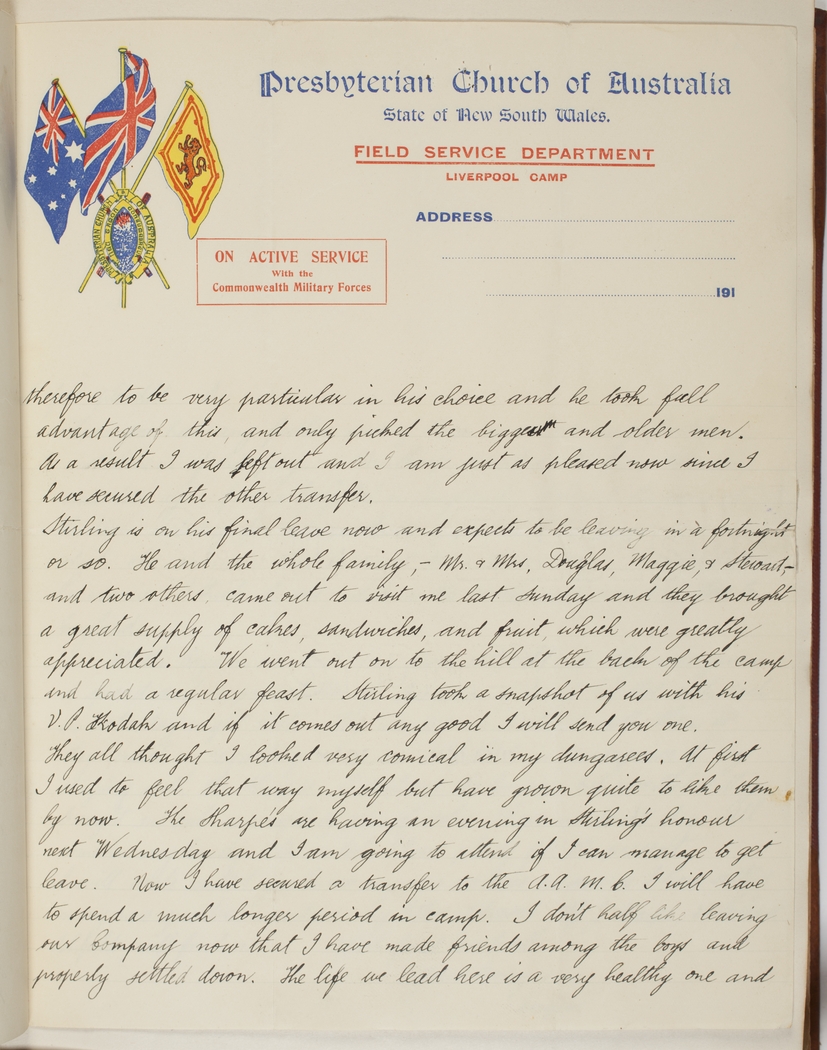 Presbyterian Church of Australia
State of New South Wales.
FIELD SERVICE DEPARTMENT
LIVERPOOL CAMP
ADDRESS
ON ACTIVE SERVICE
With the
Commonwealth Military Forces
191
therefore to be very particular in his choice and he took full
advantage of this, and only picked the biggest and older men.
As a result I was left out and I am just as pleased now since I
have secured the other transfer.
Stirling is on his final leave now and expects to be leaving in a fortnight
or so. He and the whole family, – Mr. & Mrs, Douglas, Maggie, & Stewart, –
and two others came out to visit me last Sunday and they brought
a great supply of cakes, sandwiches, and fruit, which were greatly
appreciated. We went out on to the hill at the back of the camp
and had a regular feast. Stirling took a snapshot of us with his
V.P. Kodak and if it comes out any good I will send you one.
They all thought I looked very comical in my dungarees. At first
I used to feel that way myself but have grown quite to like them
by now. The Sharpe's are having an evening in Stirling's honour
next Wednesday and I am going to attend if I can manage to get
leave. Now I have secured a transfer to the A.A.M.C. I will have
to spend a much longer period in camp. I don't half like leaving
our Company now that I have made friends among the boys and
properly settled down. The life we lead here is a very healthy one and